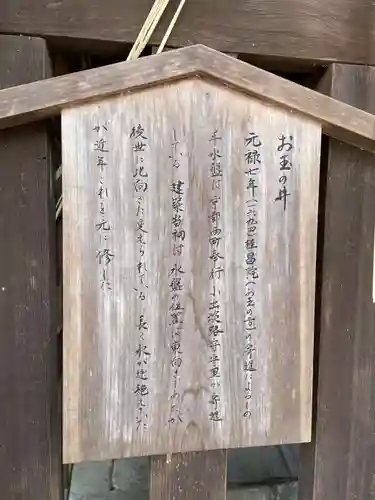 お玉の井
元禄七年(一六九四)桂昌院(お玉の方)の寄進によるもの
水盤は京都西町奉行小出淡路守守里が寄進
している 建築当初は水盤の位置は東向きであったが
後世に北向きに変えられている 長く水が途絶えていた
が近年これを元に修した